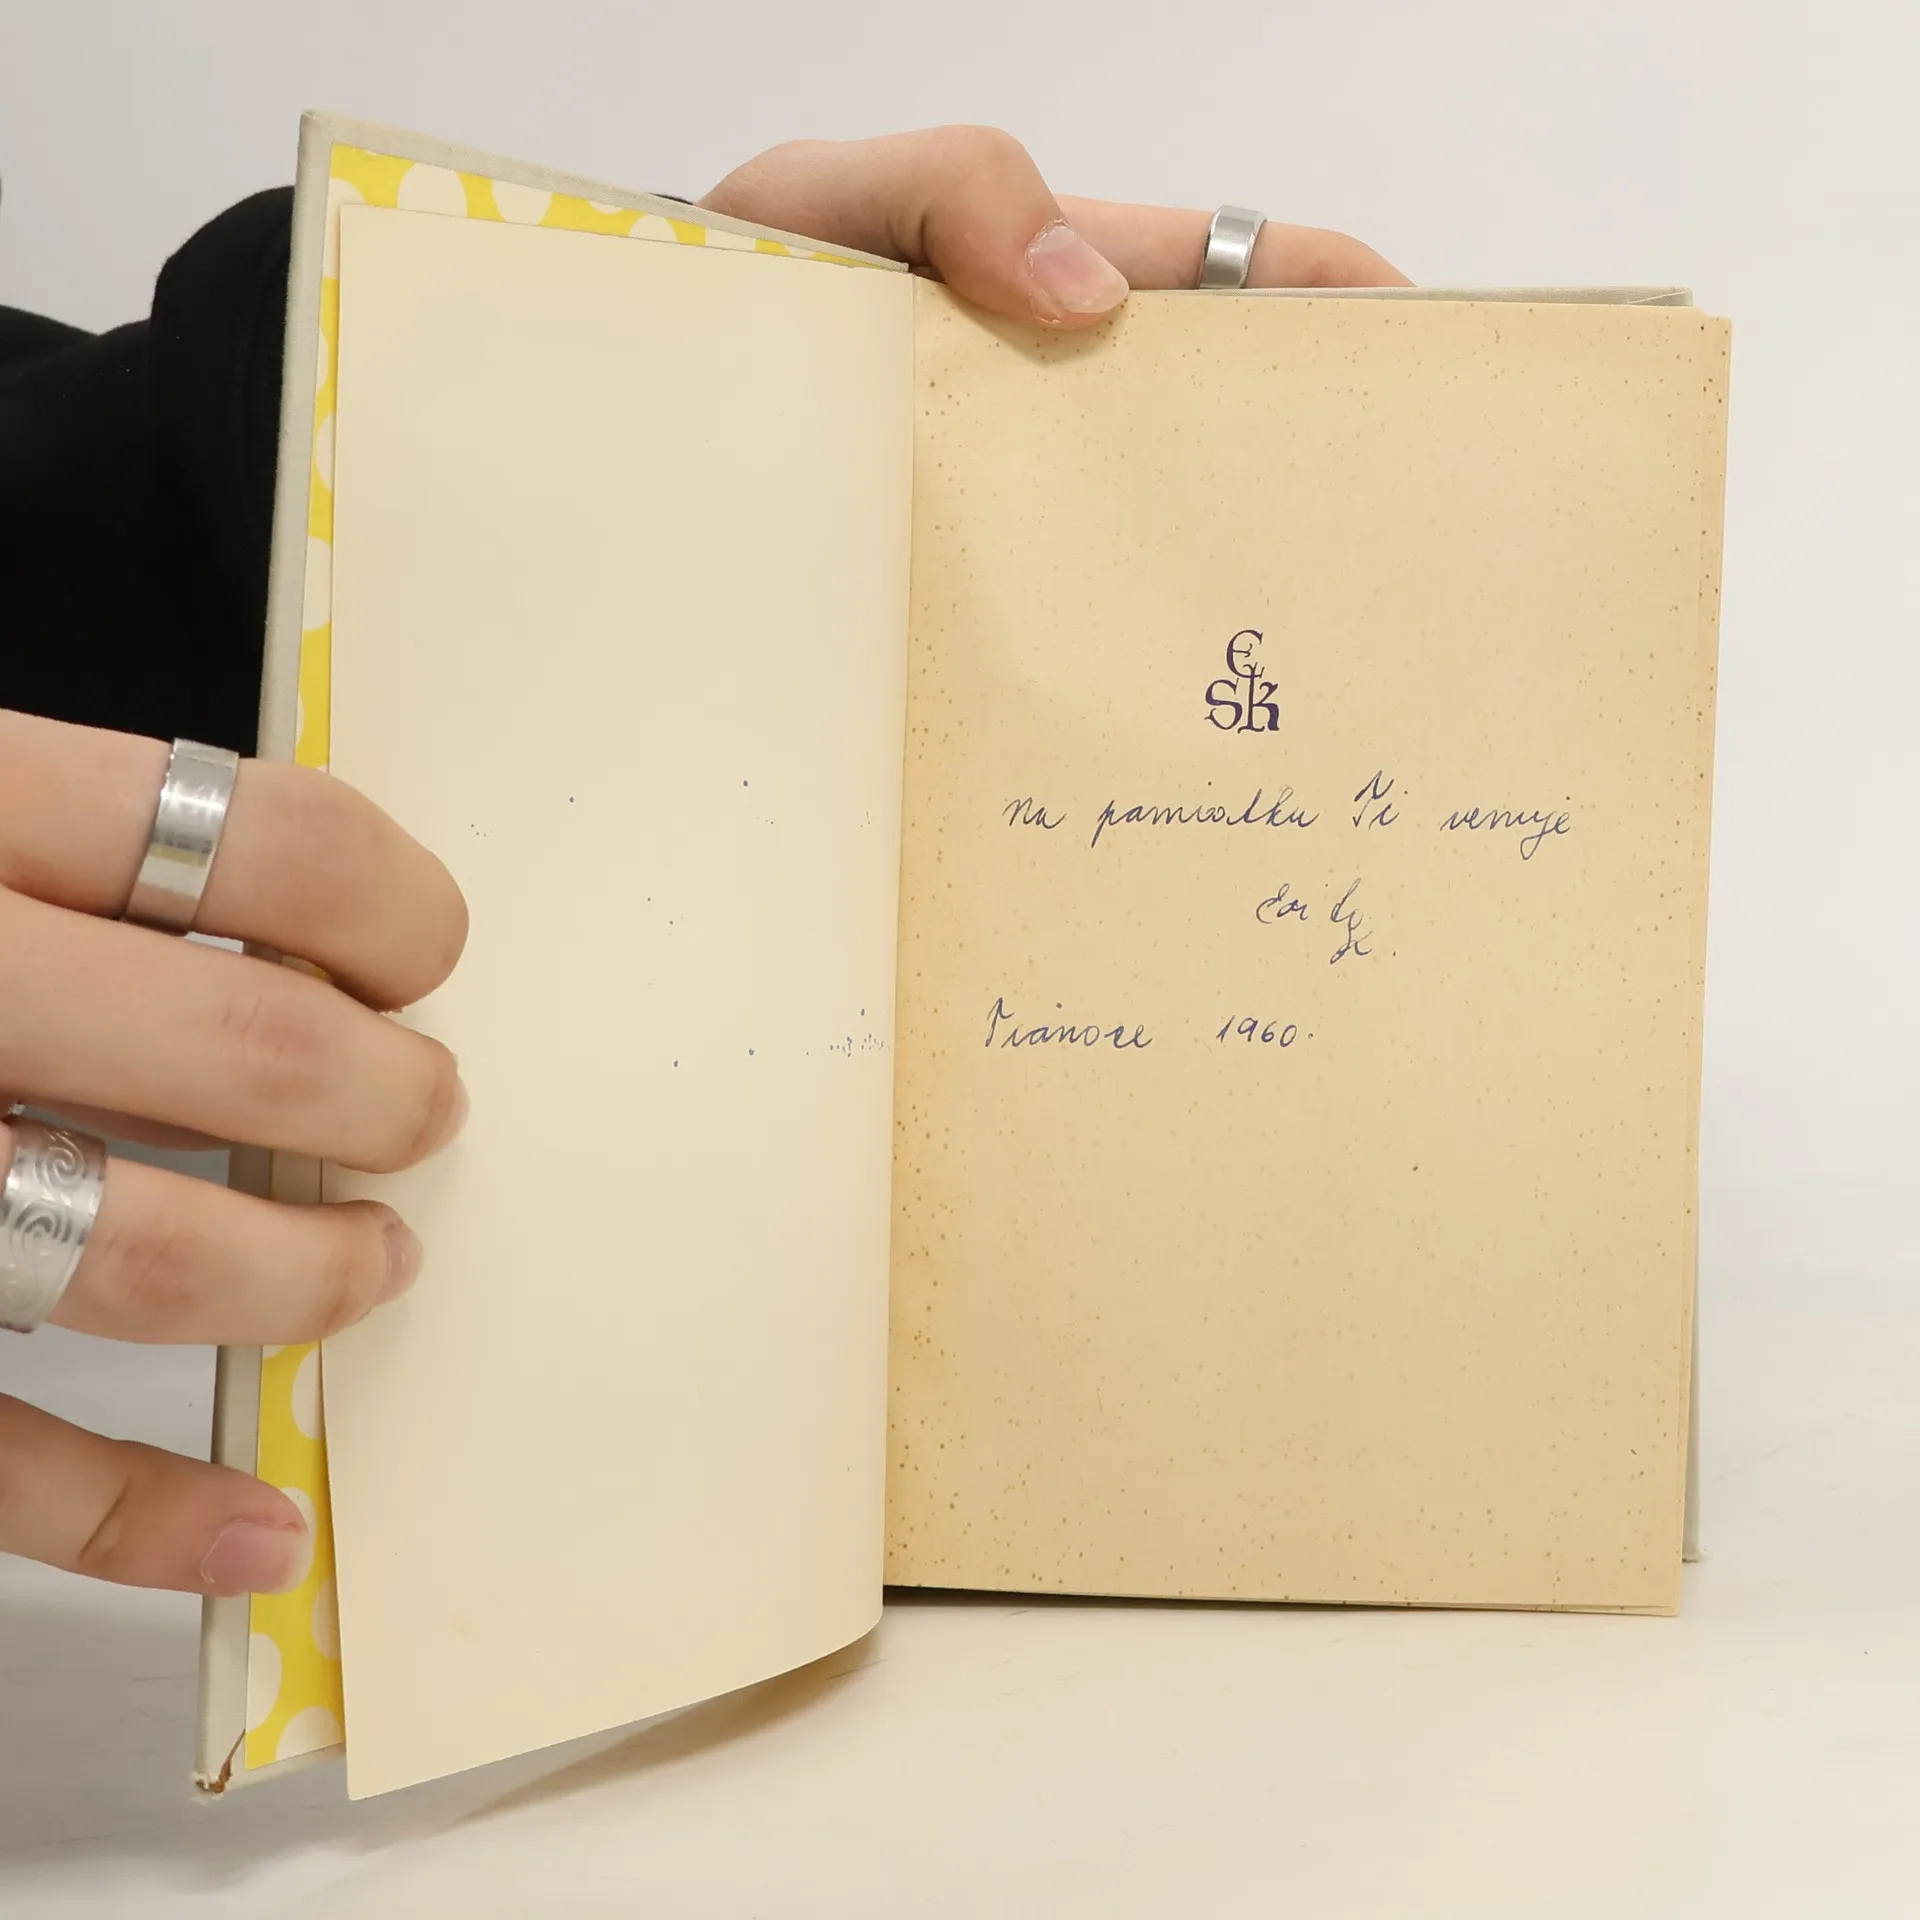 E
SK
Na pamiatku Ti venuje
Vianoce 1960.